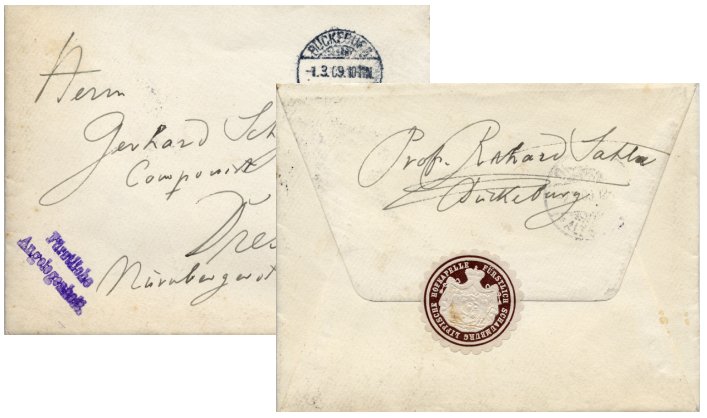 BÜCKEBURG
-1.3.09.10-11N.
Herrn
Gerhard Sch
Componist
Dre
Nürnbergerst
Fürstliche
Angelegenheit.
Prof. Richard Sahla
Bückeburg
FÜRSTLICH SCHAUMBURG LIPPISCHE HOFKAPELLE